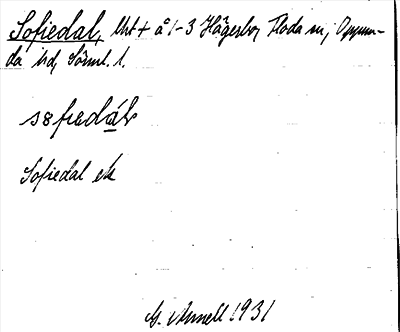 Sofiedal, lht + å 1-3 Hägerbo, Floda sn, Oppun-
da hd, Södml. l.
sofiedáls
Sofiedal ek
G. Arnell 1931